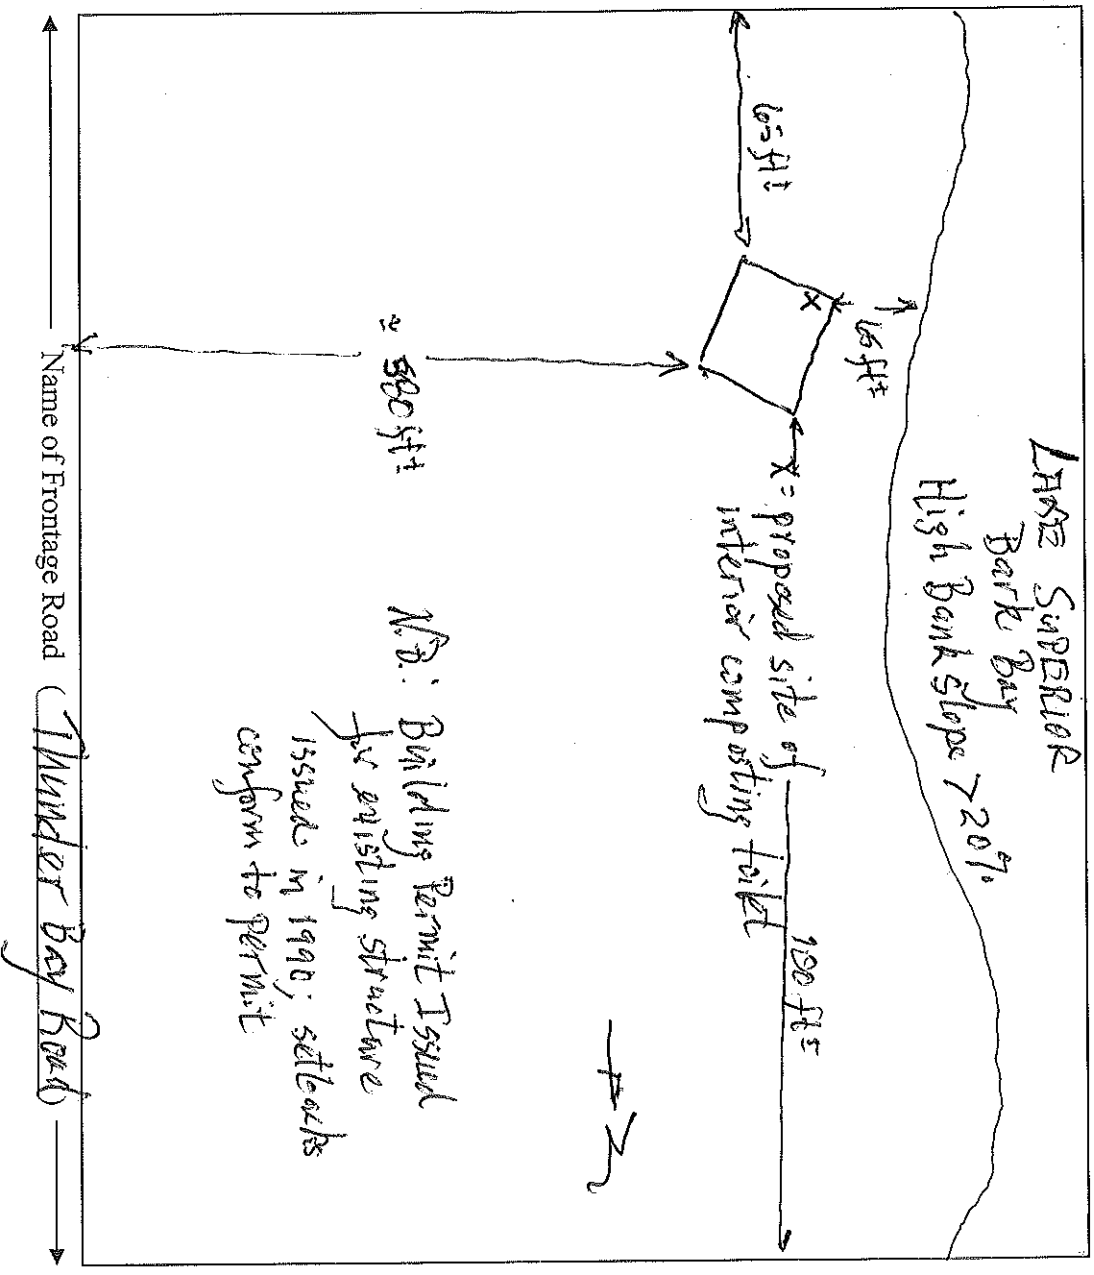 LAKE SUPERIOR
Bark Bay
High Bank Slope >20%
60 ft±
X
X = proposed site of
interior composting toilet
100 ft±
≈ 580 ft±
N.B.: Building Permit Issued
for existing structure
issued in 1990; setbacks
conform to permit
N
Name of Frontage Road ( Thunder Bay Road )